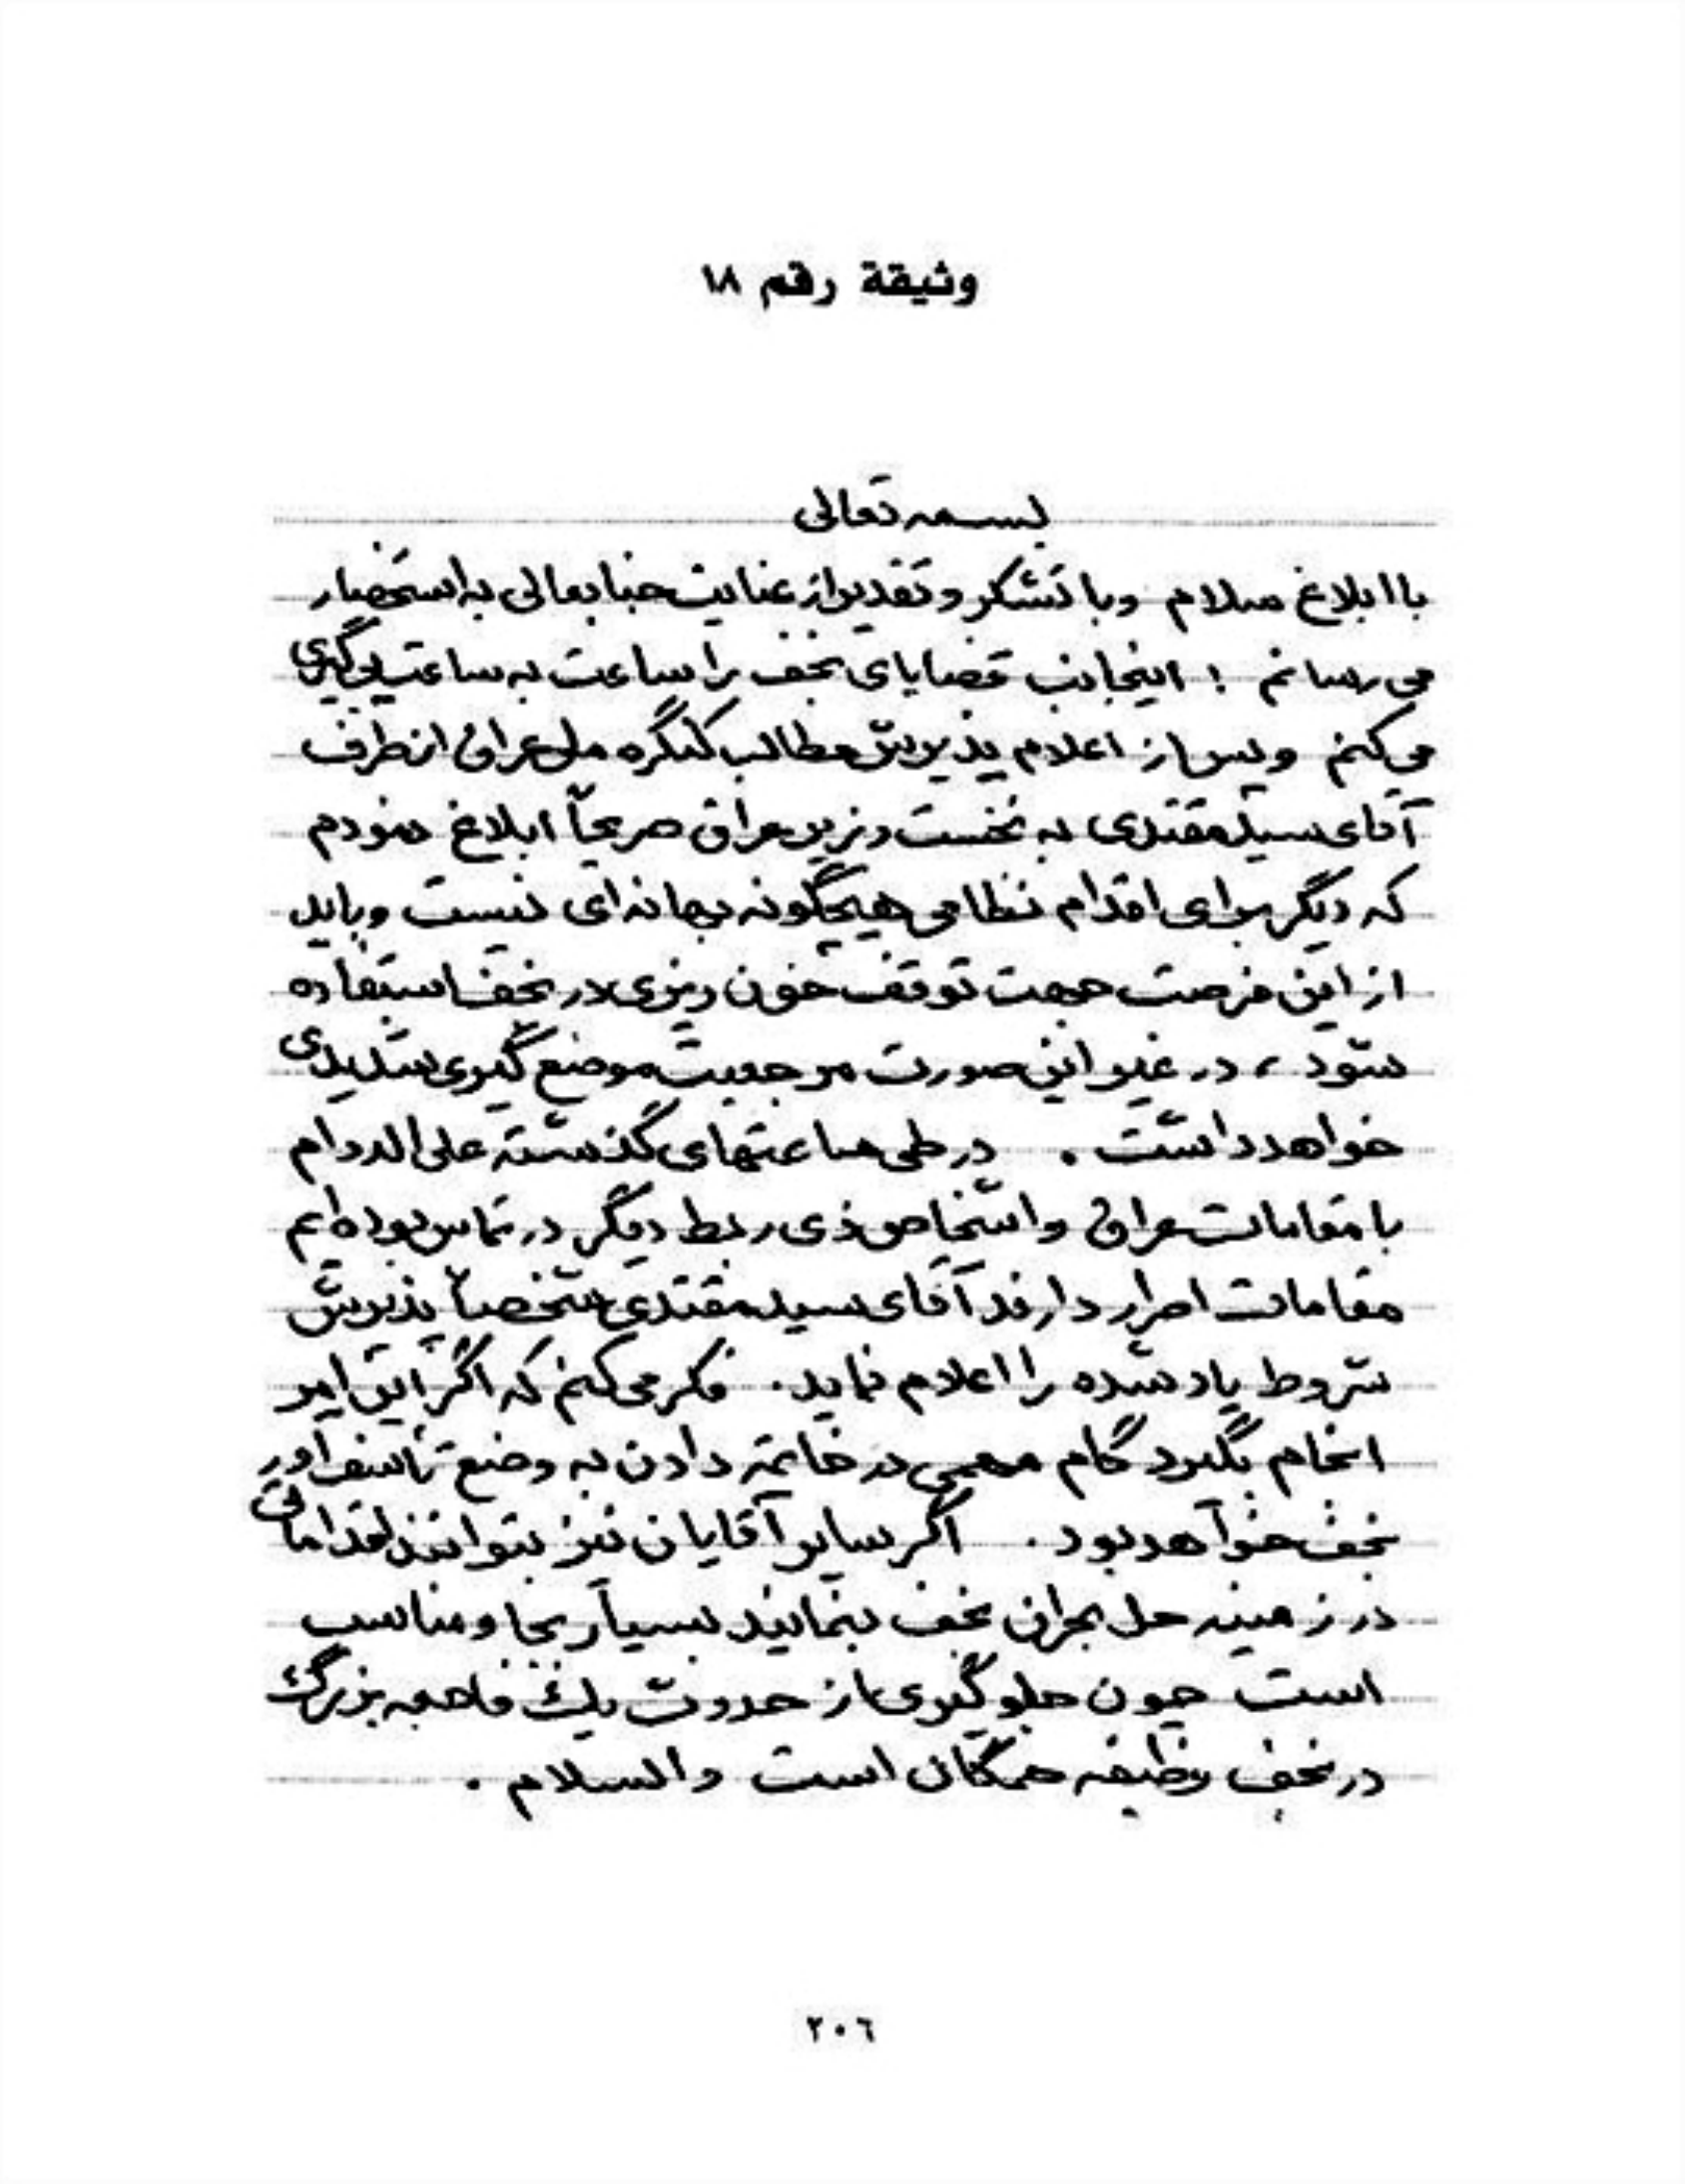 وثيقة رقم ١٨
بسمه تعالی
با ابلاغ سلام وبا تشکر و تقدیر از عنایت جنابعالی به استحضار
می رسانم : اینجانب قضایای نجف را ساعت به ساعت پی گیری
می کنم وپس از اعلام پذیرش مطالب کنگره ملی عراق از طرف
آقای سید مقتدی به نخست وزیر عراق صریحاً ابلاغ نمودم
که دیگر برای اقدام نظامی هیچگونه بهانه ای نیست وباید
از این فرصت جهت توقف خون ریزی در نجف استفاده
شود ، در غیر این صورت مرجعیت موضع گیری شدیدی
خواهد داشت . در طی ساعتهای گذشته علی الدوام
با مقامات عراق واشخاص ذی ربط دیگر در تماس بوده ایم
مقامات اصرار دارند آقای سید مقتدی شخصاً پذیرش
شروط یاد شده را اعلام نماید . فکر می کنم که اگر این امر
انجام بگیرد گام مهمی در خاتمه دادن به وضع تأسف آور
نجف خواهد بود . اگر سایر آقایان نیز بتوانند اقداماتی
در زمینه حل بحران نجف بنمایند بسیار بجا ومناسب
است چون جلوگیری از حدوث یک فاجعه بزرگ
در نجف وظیفه همگان است والسلام .
٢٠٦